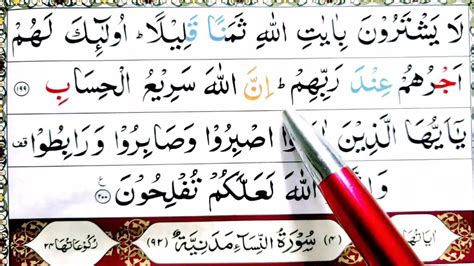 لَا يَشْتَرُوْنَ بِاٰيٰتِ اللّٰهِ ثَمَنًا قَلِيْلًا ؕ اُولٰٓئِكَ لَهُمْ
اَجْرُهُمْ عِنْدَ رَبِّهِمْ ؕ اِنَّ اللّٰهَ سَرِيْعُ الْحِسَابِ ﴿۱۹۹﴾
يٰۤاَيُّهَا الَّذِيْنَ اصْبِرُوْا وَصَابِرُوْا وَرَابِطُوْا قف
اللّٰهَ لَعَلَّكُمْ تُفْلِحُوْنَ ﴿۲۰۰﴾ ع
اٰيَاتُهَا (۴) سُوْرَةُ النِّسَآءِ مَدَنِيَّةٌ (۹۲) رُكُوْعَاتُهَا ۲۴